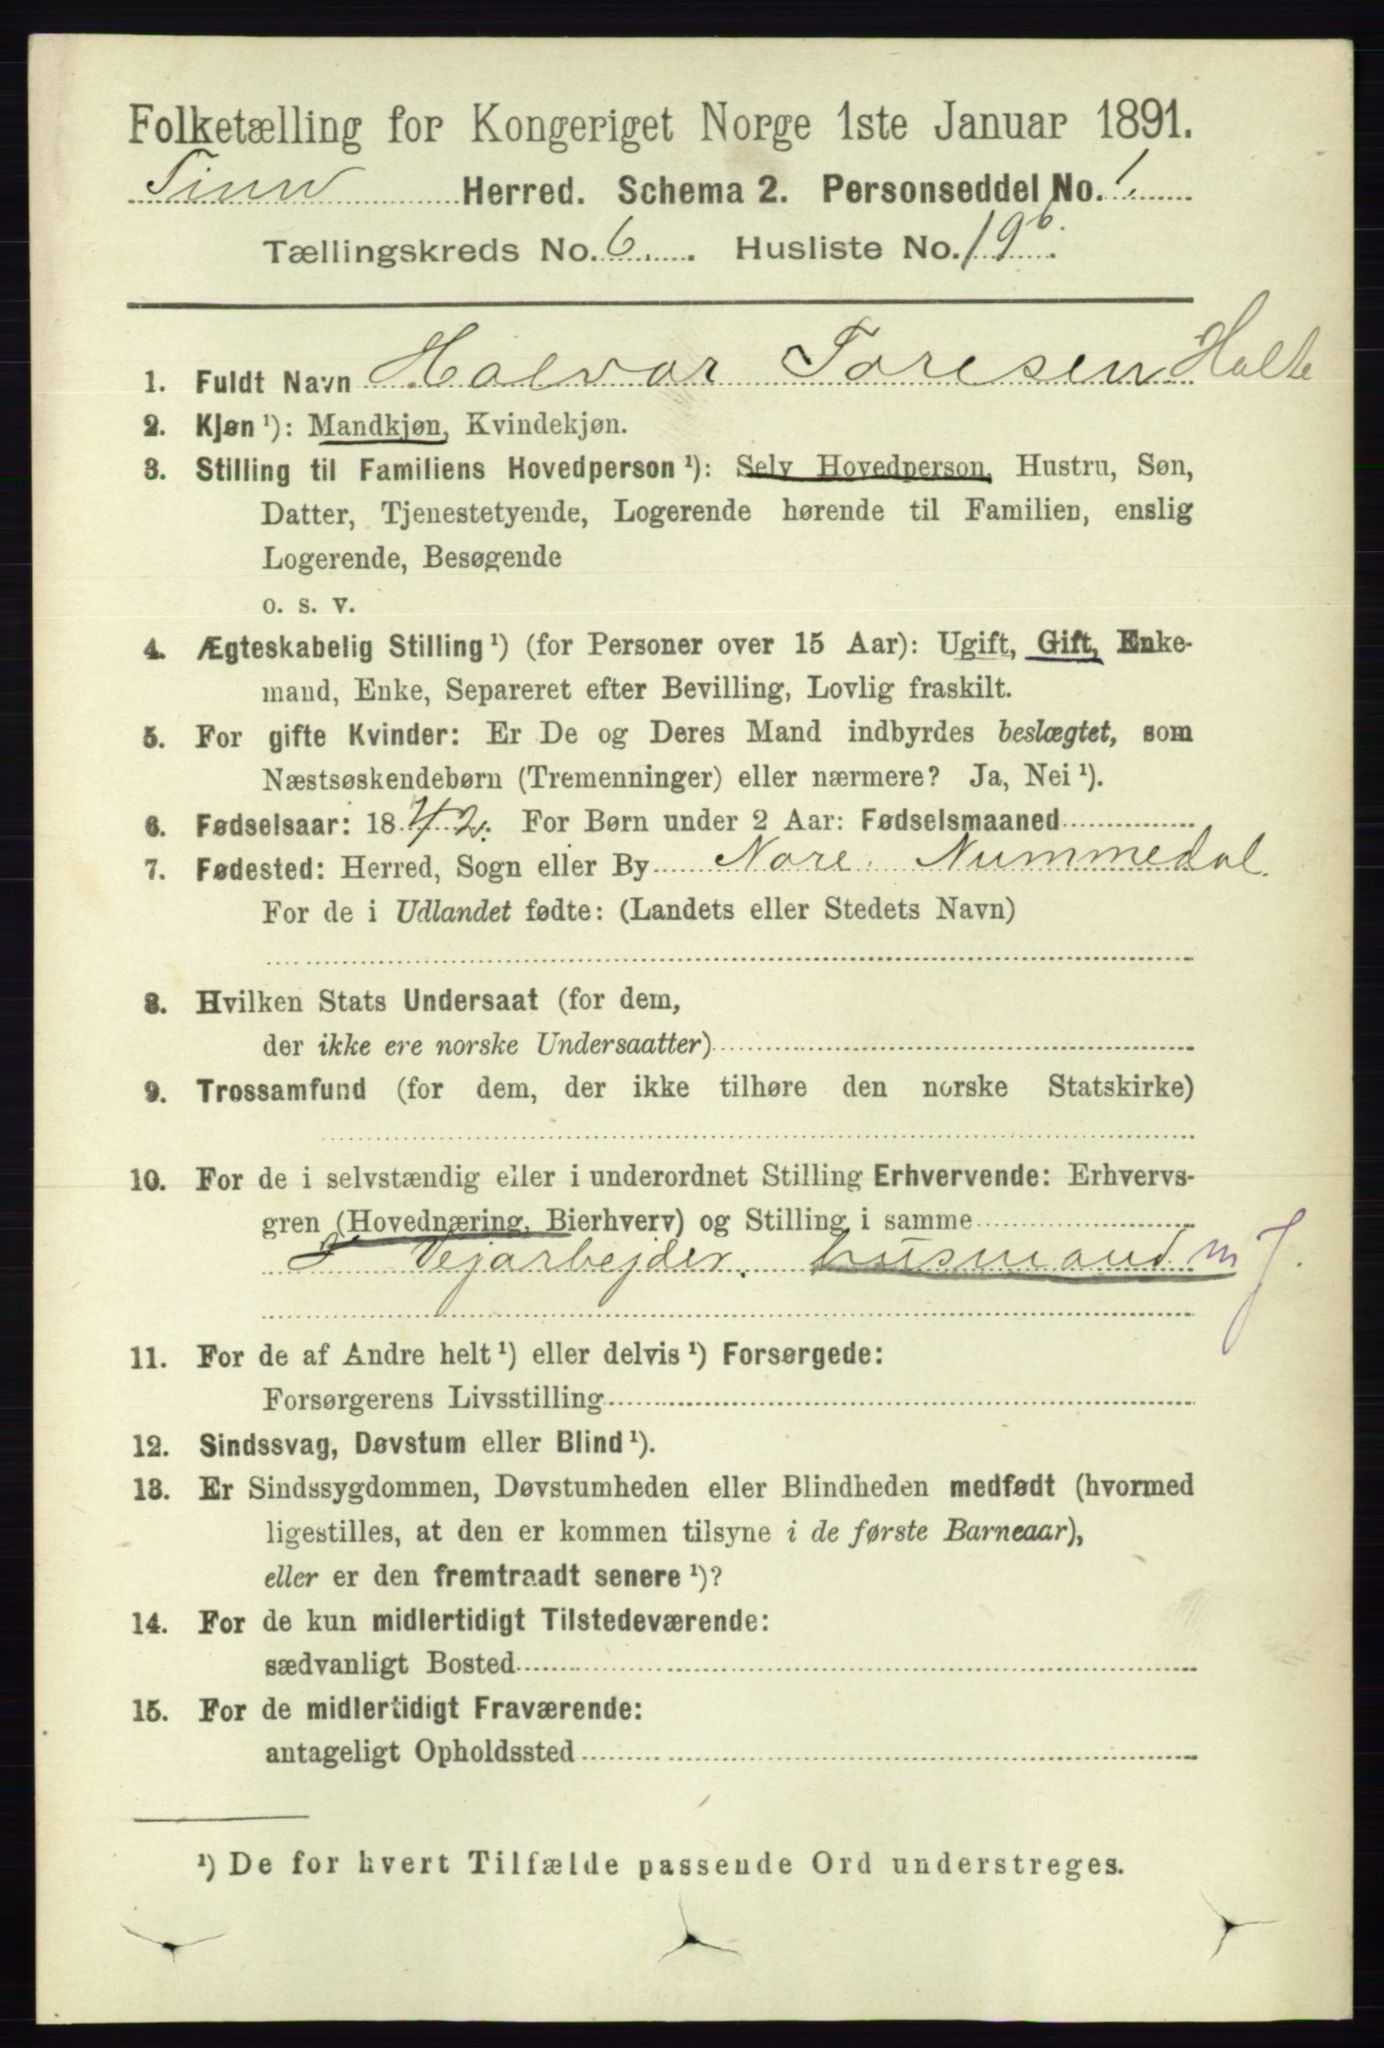 Folketælling for Kongeriget Norge 1ste Januar 1891.
Tinn Herred. Schema 2. Personseddel No. 1.
Tællingskreds No. 6. Husliste No. 19b.
1. Fuldt Navn Halvor Toresen Holte
2. Kjøn ¹): Mandkjøn, Kvindekjøn.
3. Stilling til Familiens Hovedperson ¹): Selv Hovedperson, Hustru, Søn,
Datter, Tjenestetyende, Logerende hørende til Familien, enslig
Logerende, Besøgende
o. s. v.
4. Ægteskabelig Stilling ¹) (for Personer over 15 Aar): Ugift, Gift, Enke-
mand, Enke, Separeret efter Bevilling, Lovlig fraskilt.
5. For gifte Kvinder: Er De og Deres Mand indbyrdes beslægtet, som
Næstsøskendebørn (Tremenninger) eller nærmere? Ja, Nei ¹).
6. Fødselsaar: 1842. For Børn under 2 Aar: Fødselsmaaned
7. Fødested: Herred, Sogn eller By Nore. Nummedal.
For de i Udlandet fødte: (Landets eller Stedets Navn)
8. Hvilken Stats Undersaat (for dem,
der ikke ere norske Undersaatter)
9. Trossamfund (for dem, der ikke tilhøre den norske Statskirke)
10. For de i selvstændig eller i underordnet Stilling Erhvervende: Erhvervs-
gren (Hovednæring, Bierhverv) og Stilling i samme
Vejarbejder. husmand m J.
11. For de af Andre helt ¹) eller delvis ¹) Forsørgede:
Forsørgerens Livsstilling
12. Sindssvag, Døvstum eller Blind ¹).
13. Er Sindssygdommen, Døvstumheden eller Blindheden medfødt (hvormed
ligestilles, at den er kommen tilsyne i de første Barneaar),
eller er den fremtraadt senere ¹)?
14. For de kun midlertidigt Tilstedeværende:
sædvanligt Bosted
15. For de midlertidigt Fraværende:
antageligt Opholdssted
¹) De for hvert Tilfælde passende Ord understreges.